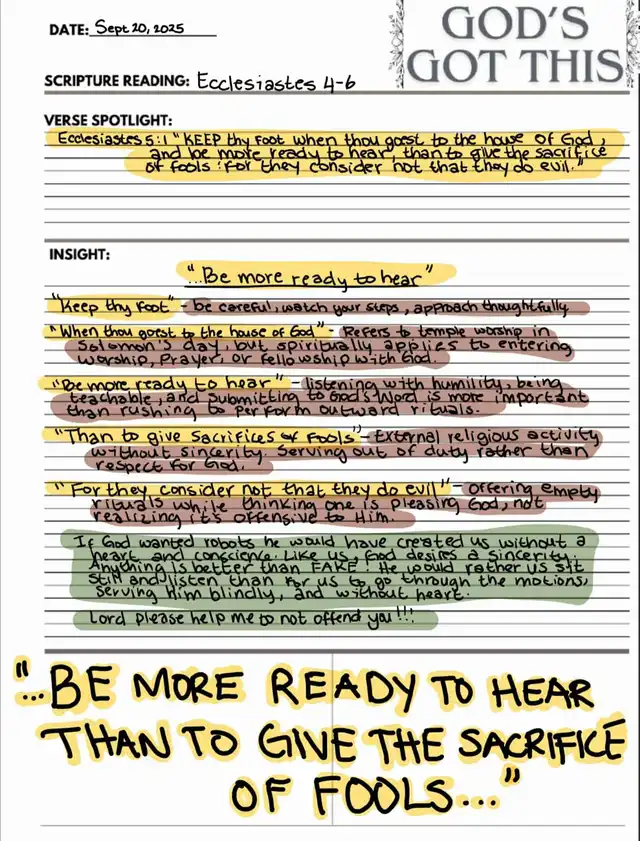 DATE: Sept 20, 2025
GOD'S
GOT THIS
SCRIPTURE READING: Ecclesiastes 4-6
VERSE SPOTLIGHT:
Ecclesiastes 5:1 "KEEP thy foot when thou goest to the house of God,
and be more ready to hear, than to give the sacrifice
of fools: for they consider not that they do evil."
INSIGHT:
"...Be more ready to hear"
"Keep thy foot" - be careful, watch your steps, approach thoughtfully.
"When thou goest to the house of God" - Refers to temple worship in
Solomon's day, but spiritually applies to entering
worship, Prayer, or fellowship with God.
"Be more ready to hear" - listening with humility, being
teachable, and submitting to God's Word is more important
than rushing to perform outward rituals.
"Than to give Sacrifices of fools" - External religious activity
without sincerity. Serving out of duty rather than
respect for God.
"For they consider not that they do evil" - offering empty
rituals while thinking one is pleasing God, not
realizing it's offensive to Him.
If God wanted robots he would have created us without a
heart and conscience. Like us, God desires a sincerity.
Anything is better than FAKE! He would rather us sit
still and listen than for us to go through the motions,
serving him blindly, and without heart.
Lord please help me to not offend you!!!
"...BE MORE READY TO HEAR
THAN TO GIVE THE SACRIFICE
OF FOOLS..."